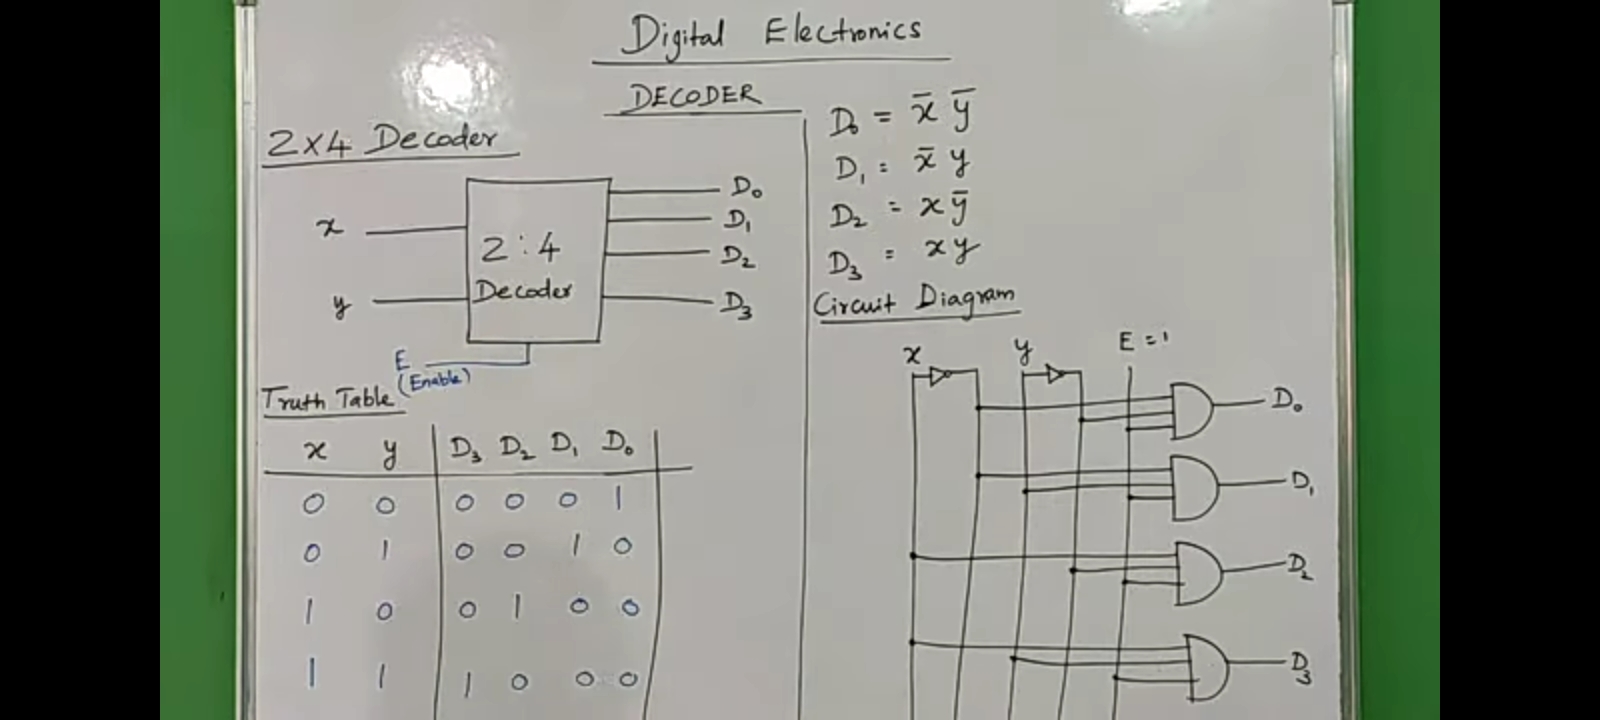 Digital Electronics
DECODER
2x4 Decoder
x
y
2:4
Decoder
D₀
D₁
D₂
D₃
E
(Enable)
Truth Table
x y D₃ D₂ D₁ D₀
0 0 0 0 0 1
0 1 0 0 1 0
1 0 0 1 0 0
1 1 1 0 0 0
D₀ = x̅ y̅
D₁ = x̅ y
D₂ = x y̅
D₃ = x y
Circuit Diagram
x y E = 1
D₀
D₁
D₂
D₃